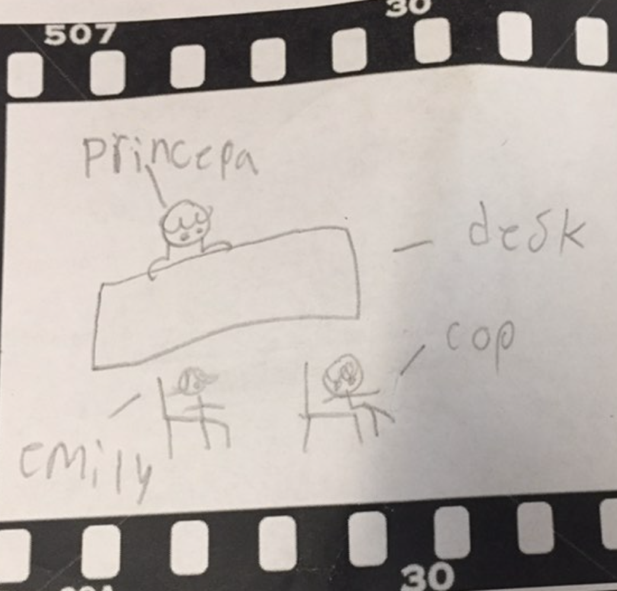 507
30
princepa
desk
cop
emily
30